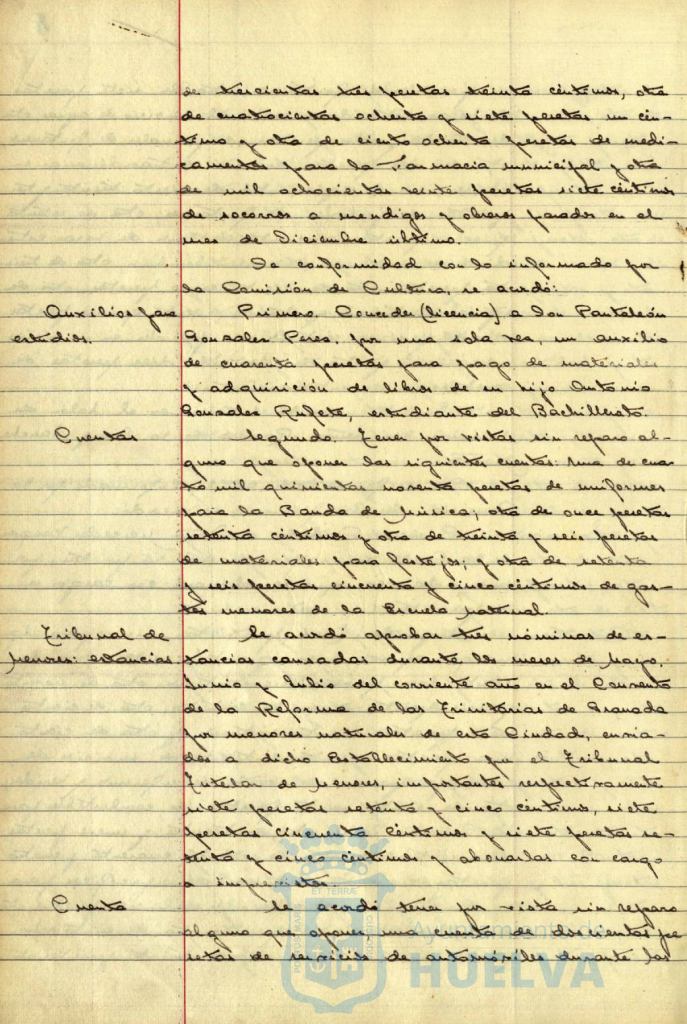 de trescientas tres pesetas treinta céntimos, otra
de cuatrocientas ochenta y siete pesetas un cén-
timo y otra de ciento ochenta pesetas de medi-
camentos para la Farmacia municipal y otra
de mil ochocientas veinte pesetas siete céntimos
de socorros a mendigos y obreros parados en el
mes de Diciembre último.
De conformidad con lo informado por
la Comisión de Cultura, se acordó:
Auxilios para
estudios.
Primero. Conceder (licencia) a don Pantaleón
Gonzalez Perez, por una sola vez, un auxilio
de cuarenta pesetas para pago de materiales
y adquisición de libros de su hijo Antonio
Gonzalez Rufete, estudiante del Bachillerato.
Cuentas
Segundo. Tener por vistas sin reparo al-
guno que oponer las siguientes cuentas: una de cua-
tro mil quinientas noventa pesetas de uniformes
para la Banda de Música; otra de once pesetas
setenta céntimos y otra de treinta y seis pesetas
de materiales para festejos; y otra de setenta
y seis pesetas cincuenta y cinco céntimos de gas-
tos menores de la Escuela maternal.
Tribunal de
Menores: estancias
Se acordó aprobar tres nóminas de es-
tancias causadas durante los meses de Mayo,
Junio y Julio del corriente año en el Convento
de la Reforma de las Trinitarias de Granada
por menores naturales de esta Ciudad, envia-
dos a dicho Establecimiento por el Tribunal
Tutelar de Menores, importantes respectivamente
siete pesetas setenta y cinco céntimos, siete
pesetas cincuenta céntimos y siete pesetas se-
tenta y cinco céntimos y abonarlas con cargo
a imprevistos.
Cuenta
Se acordó tener por vista sin reparo
alguno que oponer, una cuenta de doscientas pe-
setas de servicios de automóviles durante los
Ayuntamiento de
HUELVA